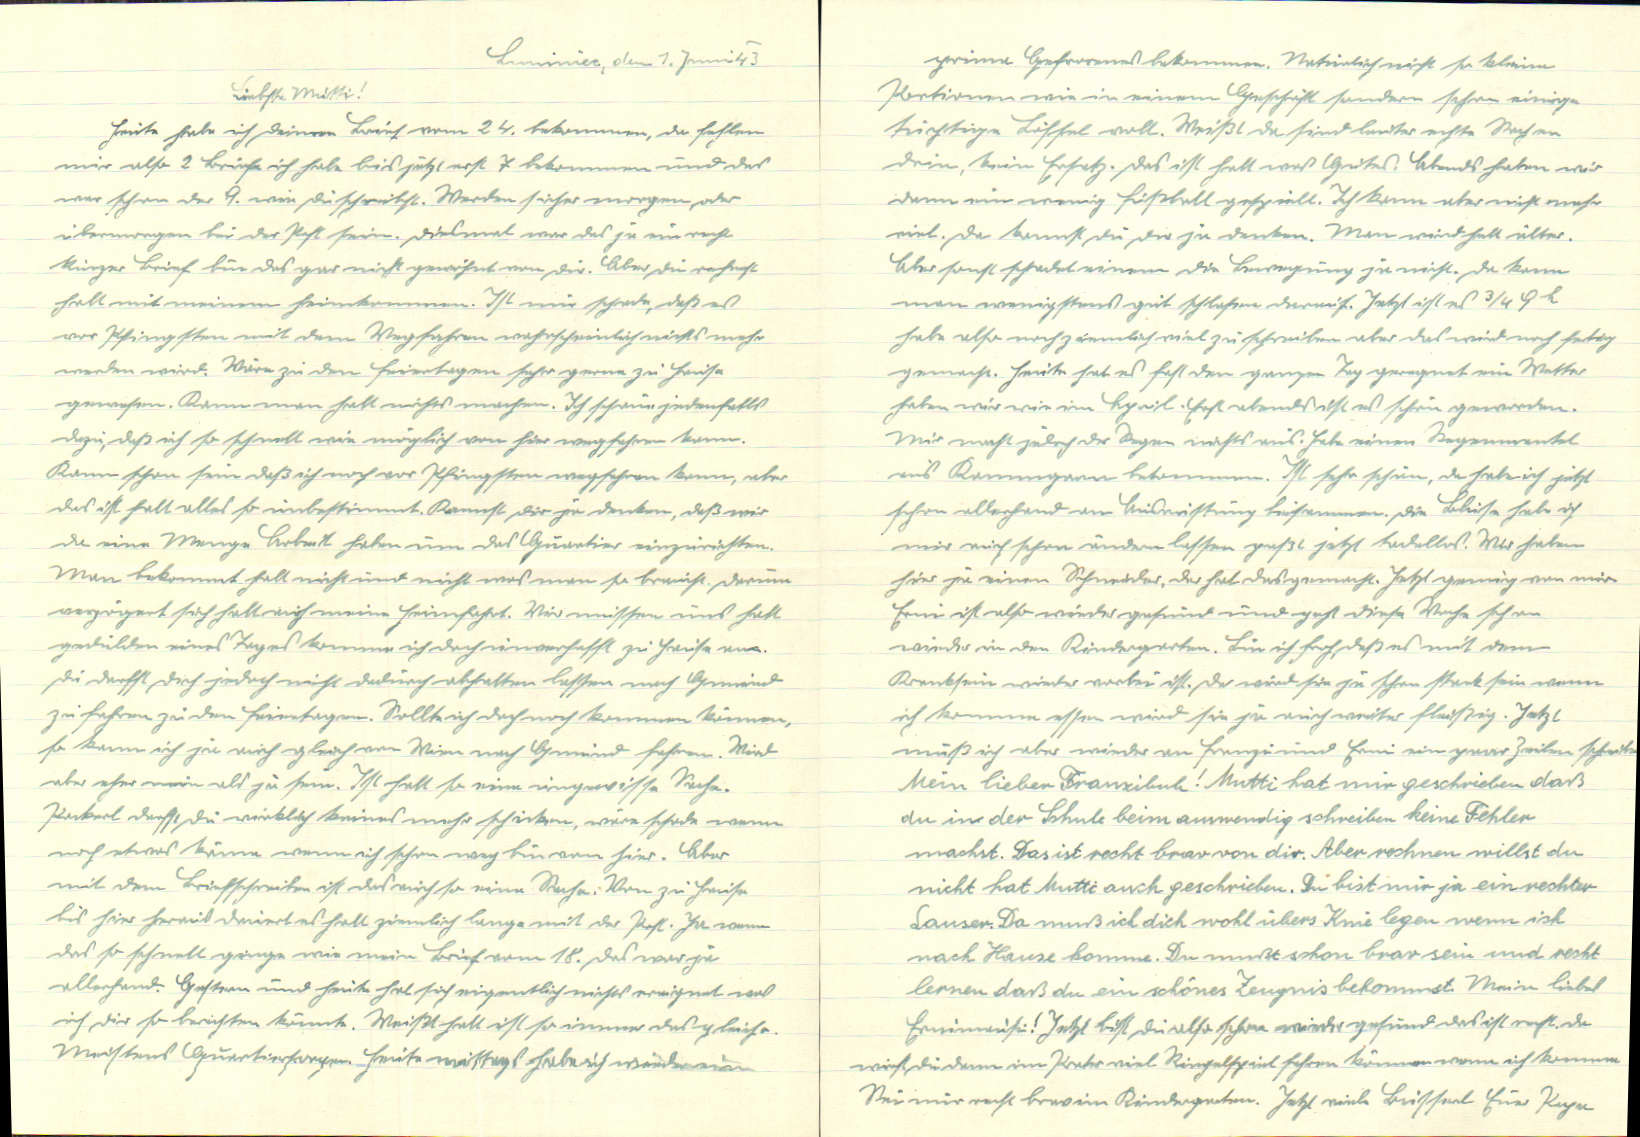 Luminiec, den 1. Juni 43
Liebste Mutti!
Heute habe ich deinen Brief vom 24. bekommen, da fehlen
mir also 2 Briefe ich habe bis jetzt erst 7 bekommen und das
war schon der 9. wie du schreibst. Werden sicher morgen oder
übermorgen bei der Post sein. Diesmal war das ja ein recht
kurzer Brief bin das gar nicht gewöhnt von dir. Aber du rechnest
halt mit meinem Heimkommen. Ist nur schade, daß es
vor Pfingsten mit dem Wegfahren wahrscheinlich nichts mehr
werden wird. Wäre zu den Feiertagen sehr gerne zu Hause
gewesen. Kann man halt nichts machen. Ich schaue jedenfalls
dazu, daß ich so schnell wie möglich von hier wegfahren kann.
Kann schon sein daß ich noch vor Pfingsten wegfahren kann, aber
das ist halt alles so unbestimmt. Kannst dir ja denken, daß wir
da eine Menge Arbeit haben um das Quartier einzurichten.
Man bekommt halt nicht und nicht was man so braucht. Darum
verzögert sich halt auch meine Heimfahrt. Wir müssen uns halt
gedulden eines Tages komme ich doch unverhofft zu Hause an.
Du darfst dich jedoch nicht dadurch abhalten lassen nach Gmünd
zu fahren zu den Feiertagen. Sollte ich doch noch kommen können,
so kann ich ja auch gleich von Wien nach Gmünd fahren. Wird
aber eher nein als ja sein. Ist halt so eine ungewisse Sache.
Packerl darfst du wirklich keines mehr schicken, wäre schade wenn
noch etwas käme wenn ich schon weg bin von hier. Aber
mit dem Briefschreiben ist das auch so eine Sache. Von zu Hause
bis hier heraus dauert es halt ziemlich lange mit der Post. Ja wenn
das so schnell ginge wie mein Brief vom 18. das war ja
allerhand. Gestern und heute hat sich eigentlich nichts ereignet was
ich dir so berichten könnte. Weißt halt ist so immer das gleiche.
Meistens Quartiersorgen. Heute mittags habe ich wieder ein
prima Gefrorenes bekommen. Natürlich nicht so kleine
Portionen wie in einem Geschäft sondern schon einige
tüchtige Löffel voll. Weißt da sind lauter echte Sachen
drin, kein Ersatz. Das ist halt was Gutes. Abends haben wir
dann ein wenig Fußball gespielt. Ich kann aber nicht mehr
viel. Da kannst du dir ja denken. Man wird halt älter.
Aber sonst schadet einem die Bewegung ja nicht. Da kann
man wenigstens gut schlafen darauf. Jetzt ist es 3/4 9 h
habe also noch ziemlich viel zu schreiben aber das wird noch fertig
gemacht. Heute hat es fast den ganzen Tag geregnet ein Wetter
haben wir wie im April. Erst abends ist es schön geworden.
Mir macht jedoch der Regen nichts aus. Habe einen Regenmantel
aus Kammgarn bekommen. Ist sehr schön, da habe ich jetzt
schon allerhand an Ausrüstung beisammen. Die Bluse habe ich
mir auch schon ändern lassen paßt jetzt tadellos. Wir haben
hier ja einen Schneider, der hat das gemacht. Jetzt genug von mir.
Erni ist also wieder gesund und geht diese Woche schon
wieder in den Kindergarten. Bin ich froh, daß es mit dem
Kranksein wieder vorbei ist. Da wird sie ja schon stark sein wenn
ich komme essen wird sie ja auch weiter fleißig. Jetzt
muß ich aber wieder an Franzi und Erni ein paar Zeilen schreiben
Mein lieber Franzibub! Mutti hat mir geschrieben daß
du in der Schule beim auswendig schreiben keine Fehler
machst. Das ist recht brav von dir. Aber rechnen willst du
nicht hat Mutti auch geschrieben. Du bist mir ja ein rechter
Lauser. Da muß ich dich wohl übers Knie legen wenn ich
nach Hause komme. Du mußt schon brav sein und recht
lernen daß du ein schönes Zeugnis bekommst. Mein liebes
Ernimausi! Jetzt bist du also schon wieder gesund das ist recht. Da
wirst du dann im Prater viel Ringelspiel fahren können wenn ich komme
Sei mir recht brav im Kindergarten. Jetzt viele Busserl Euer Papa